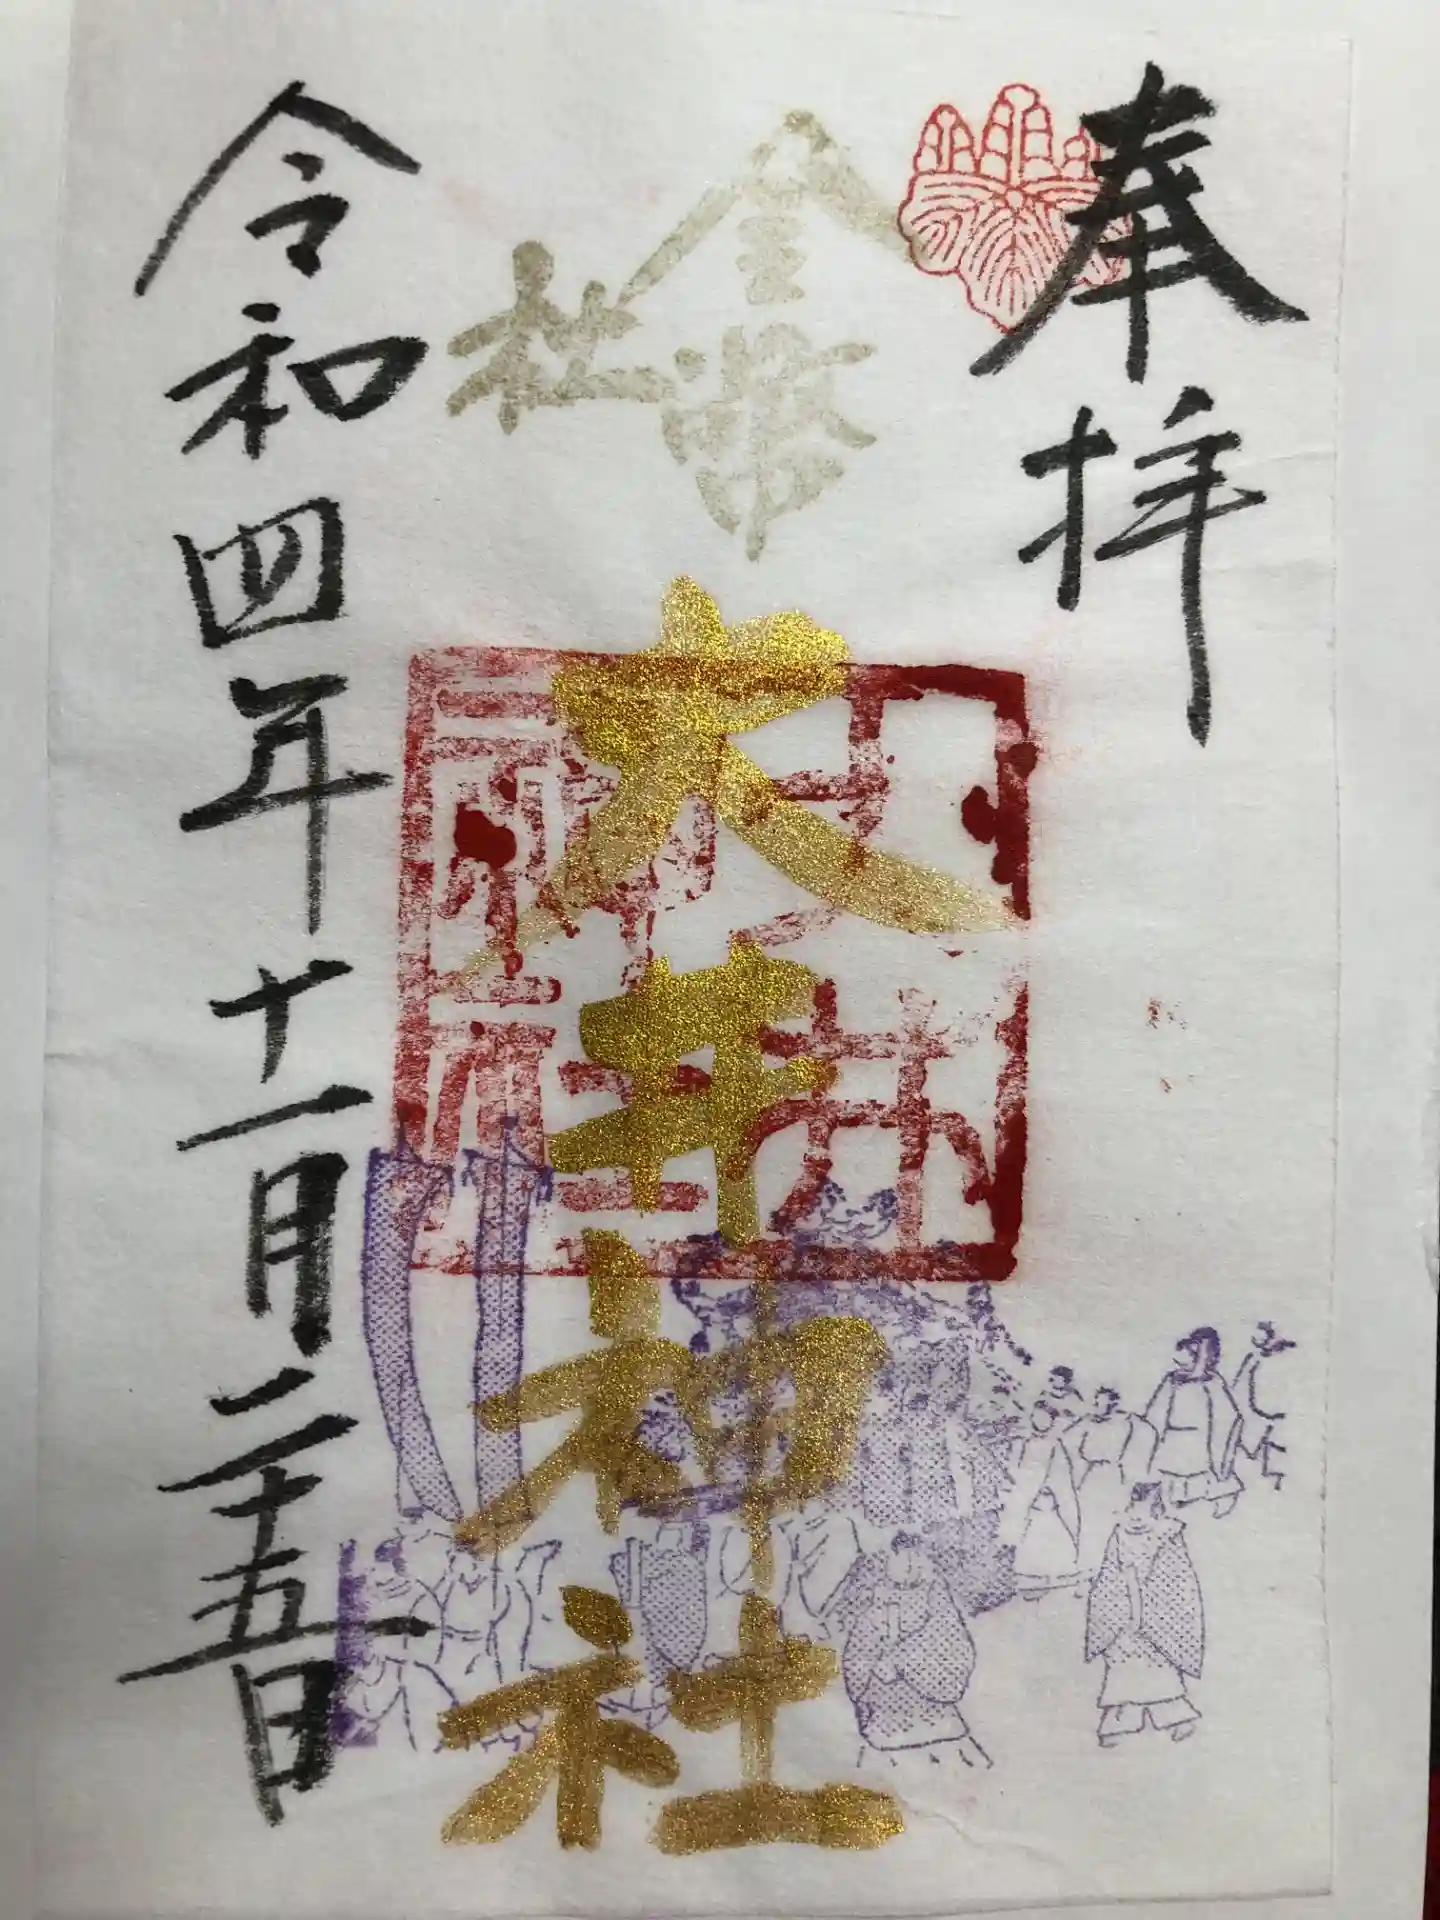 奉拝
金幣社
大井神社
令和四年十一月二十五日